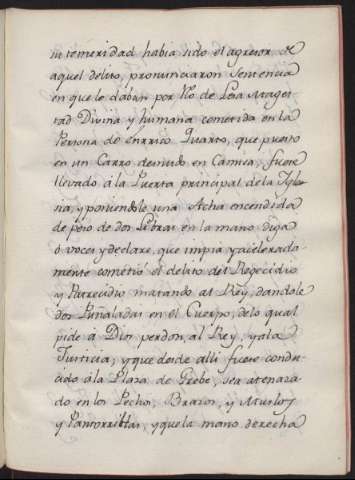 su temeridad habia sido el agresor de
aquel delito, pronunciaron Sentencia
en que le daban por Rèo de Lesa Mages
tad Divina y humana cometida en la
Persona de Enrrico Quarto, que puesto
en un Carro desnudo en Camisa, fuese
llevado á la Puerta principal de la Igle
sia, y poniendole una Acha encendida
de peso de dos Libras en la mano diga
á voces y declare, que impia y acelerada
mente cometió el delito del Regecidio
y Parrecidio matando al Rey, dandole
dos Puñaladas en el Cuerpo, delo qual
pide á Dios perdon, al Rey, yala
Justicia, y que desde alli fuese condu
cido àla Plaza de Grebe, sea atenaza
do en los Pechos, Brazos, y Muslos
y Pantorrillas, y que la mano derecha